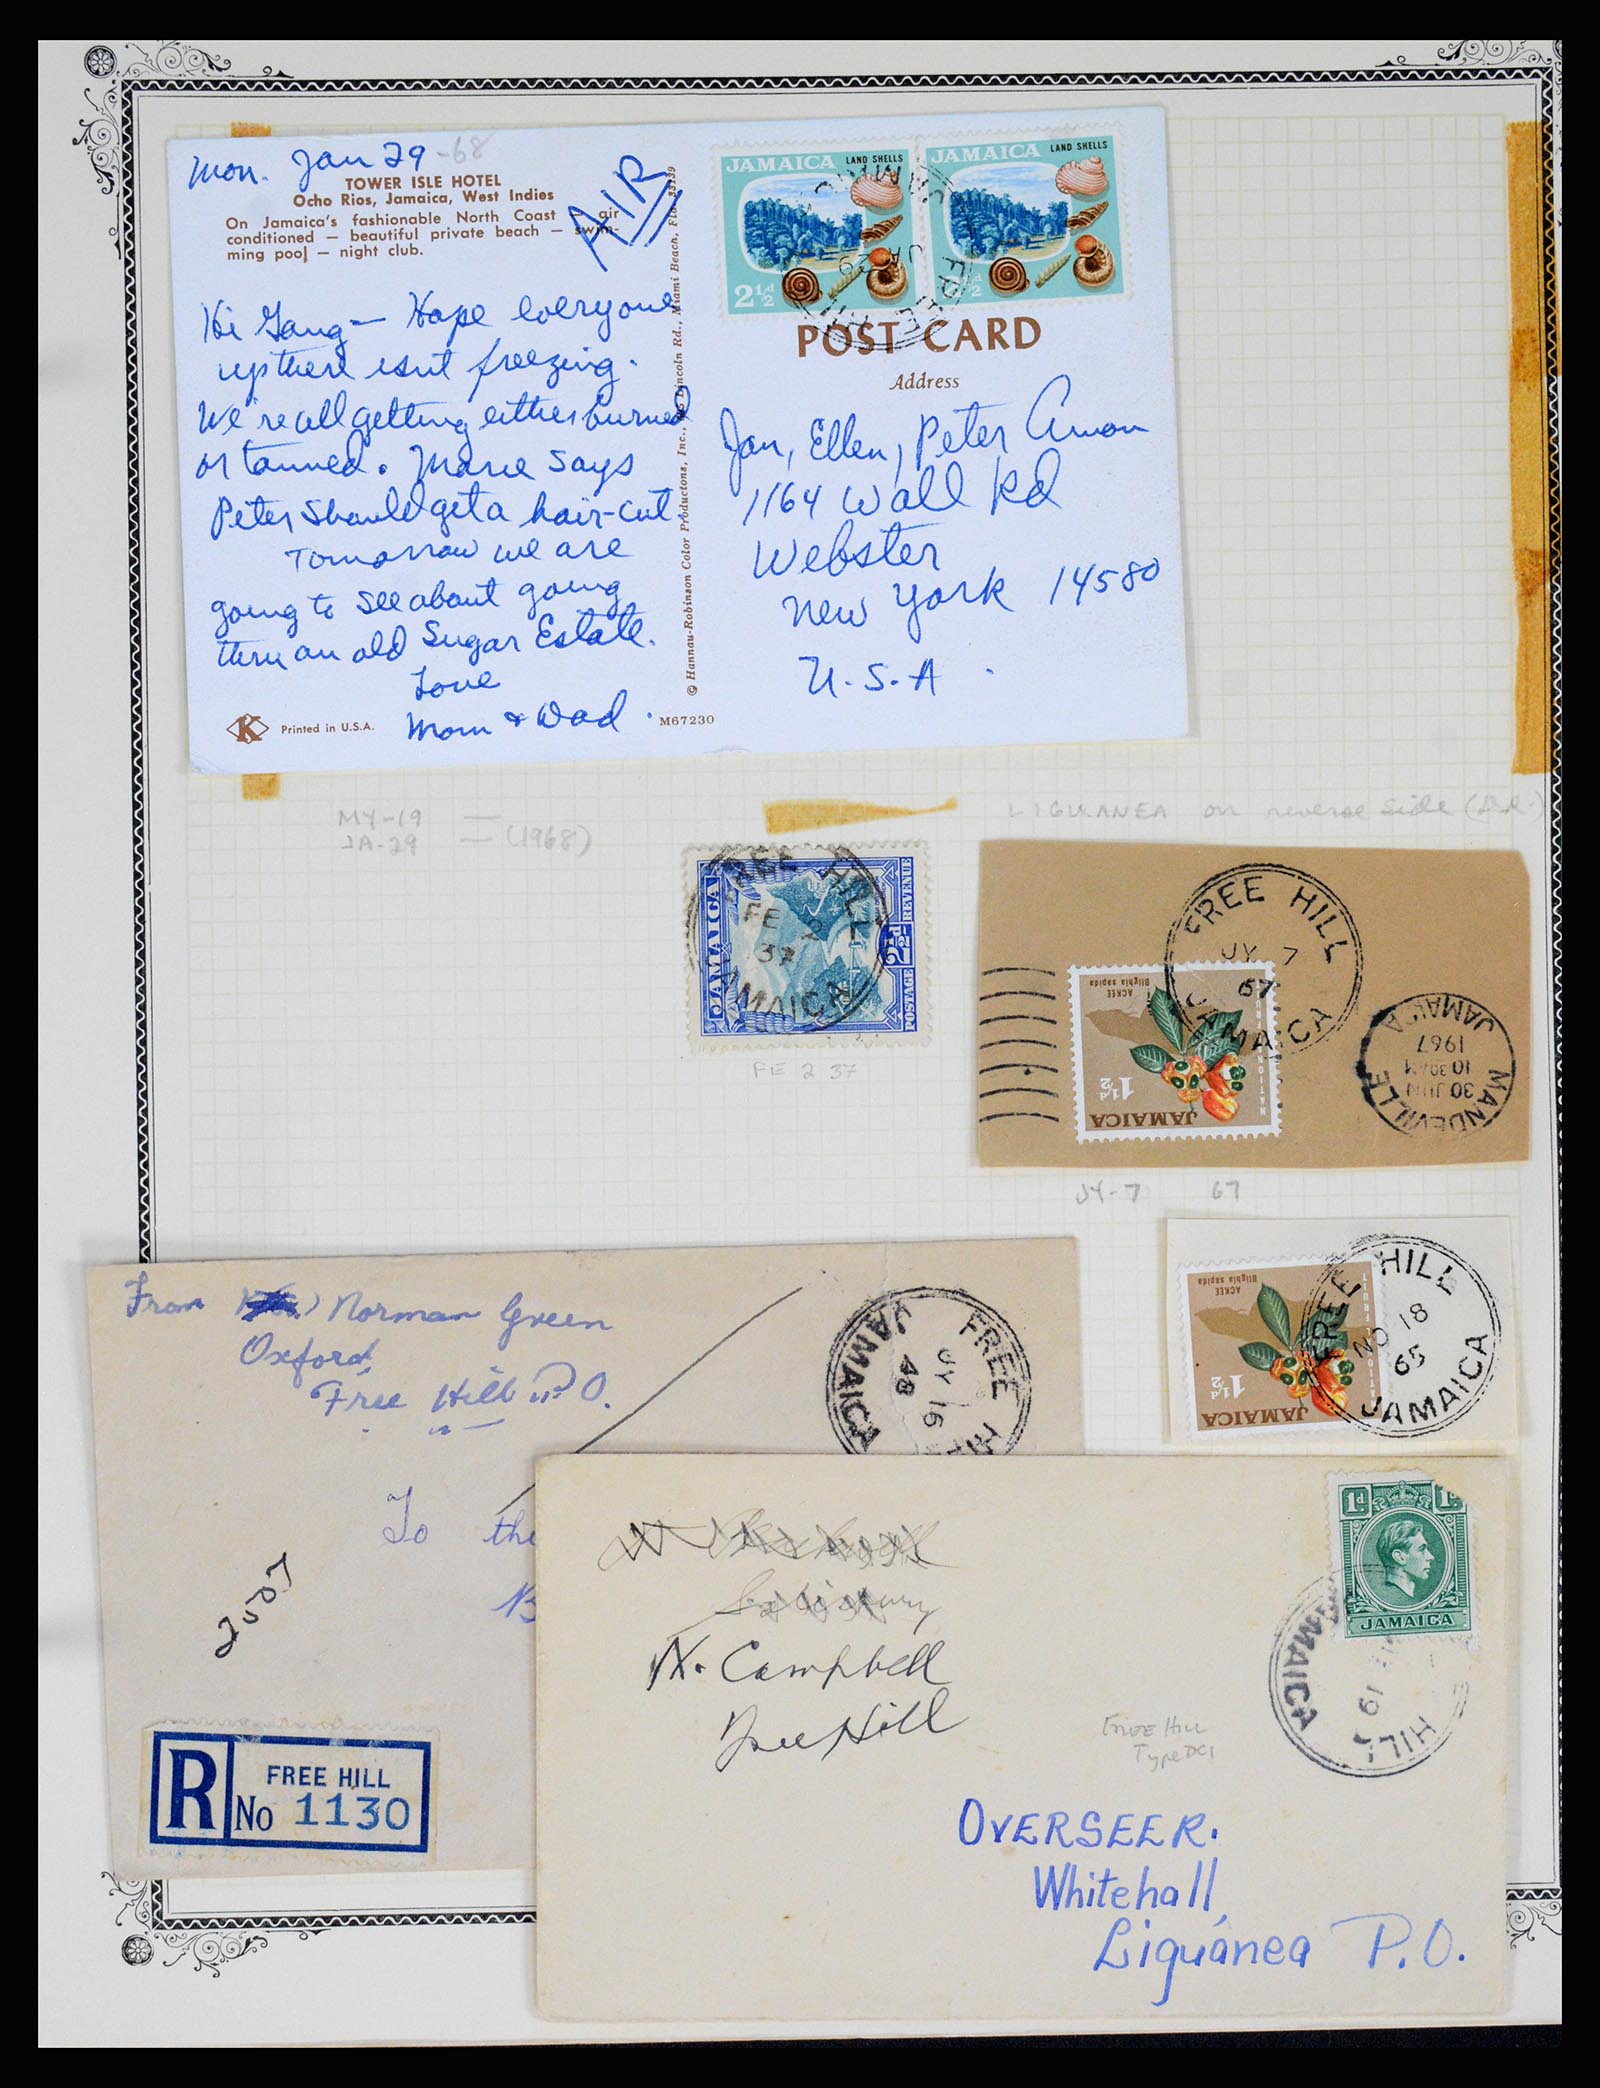 Mon. Jan 29 -68
TOWER ISLE HOTEL
Ocho Rios, Jamaica, West Indies
On Jamaica's fashionable North Coast — air
conditioned — beautiful private beach — swim-
ming pool — night club.
AIR
Hi Gang — Hope everyone
up there isn't freezing.
We're all getting either burned
or tanned. Marie says
Peter should get a hair-cut.
Tomorrow we are
going to see about going
thru an old Sugar Estate.
Love
Mom & Dad.
K
Printed in U.S.A.
© Hannau-Robinson Color Productions, Inc., Lincoln Rd., Miami Beach, Fla. 33139
M67230
JAMAICA LAND SHELLS
2½d
JAMAICA LAND SHELLS
½d
FREE HILL
JA 29
JAMAICA
POST CARD
Address
Jan, Ellen, Peter Amon
1164 Wall Rd
Webster
New York 14580
U.S.A.
MY-19 —
JA-29 — (1968)
LIGUANEA on reverse side
JAMAICA
POSTAGE 2½d REVENUE
FREE HILL
FE 2
37
JAMAICA
FE 2 37
FREE HILL
JY 7
67
JAMAICA
ACKEE
Blighia sapida
NATIONAL FRUIT
1½d
JAMAICA
MANDEVILLE
30 JUN
10 30 AM
1967
JAMAICA
JY-7 67
FREE HILL
NO 18
65
JAMAICA
ACKEE
Blighia sapida
1½d
JAMAICA
From Norman Green
Oxford,
Free Hill P.O.
FREE HILL
JY 16
48
JAMAICA
To the
2007
R
FREE HILL
No 1130
1d
JAMAICA
HILL
19
JAMAICA
N. Campbell
Free Hill
FREE HILL
Type DC1
OVERSEER.
Whitehall,
Liguanea P.O.